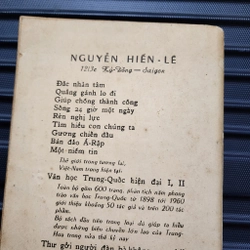 NGUYỄN HIẾN-LÊ
12/3c Kỳ-Đồng — Saigon
Đắc nhân tâm
Quẳng gánh lo đi
Giúp chồng thành công
Sống 24 giờ một ngày
Rèn nghị lực
Tìm hiểu con chúng ta
Gương chiến đấu
Bán đảo Ả-Rập
Một niềm tin
Thế giới trong tương lai,
Việt-Nam trong hiện tại.
Văn học Trung-Quốc hiện đại I, II
Toàn bộ gồm 600 trang, phân tích năm phong
trào văn học Trung-Quốc từ 1898 tới 1960
giới thiệu khoảng 50 tác giả và trên 200 tác
phẩm.
Bộ sách đầu tiên trong loại đó giúp ta hiểu
được những biến chuyển lớn lao của Trung-
Hoa trong nửa thế kỷ nay
Thư gởi người đàn bà không